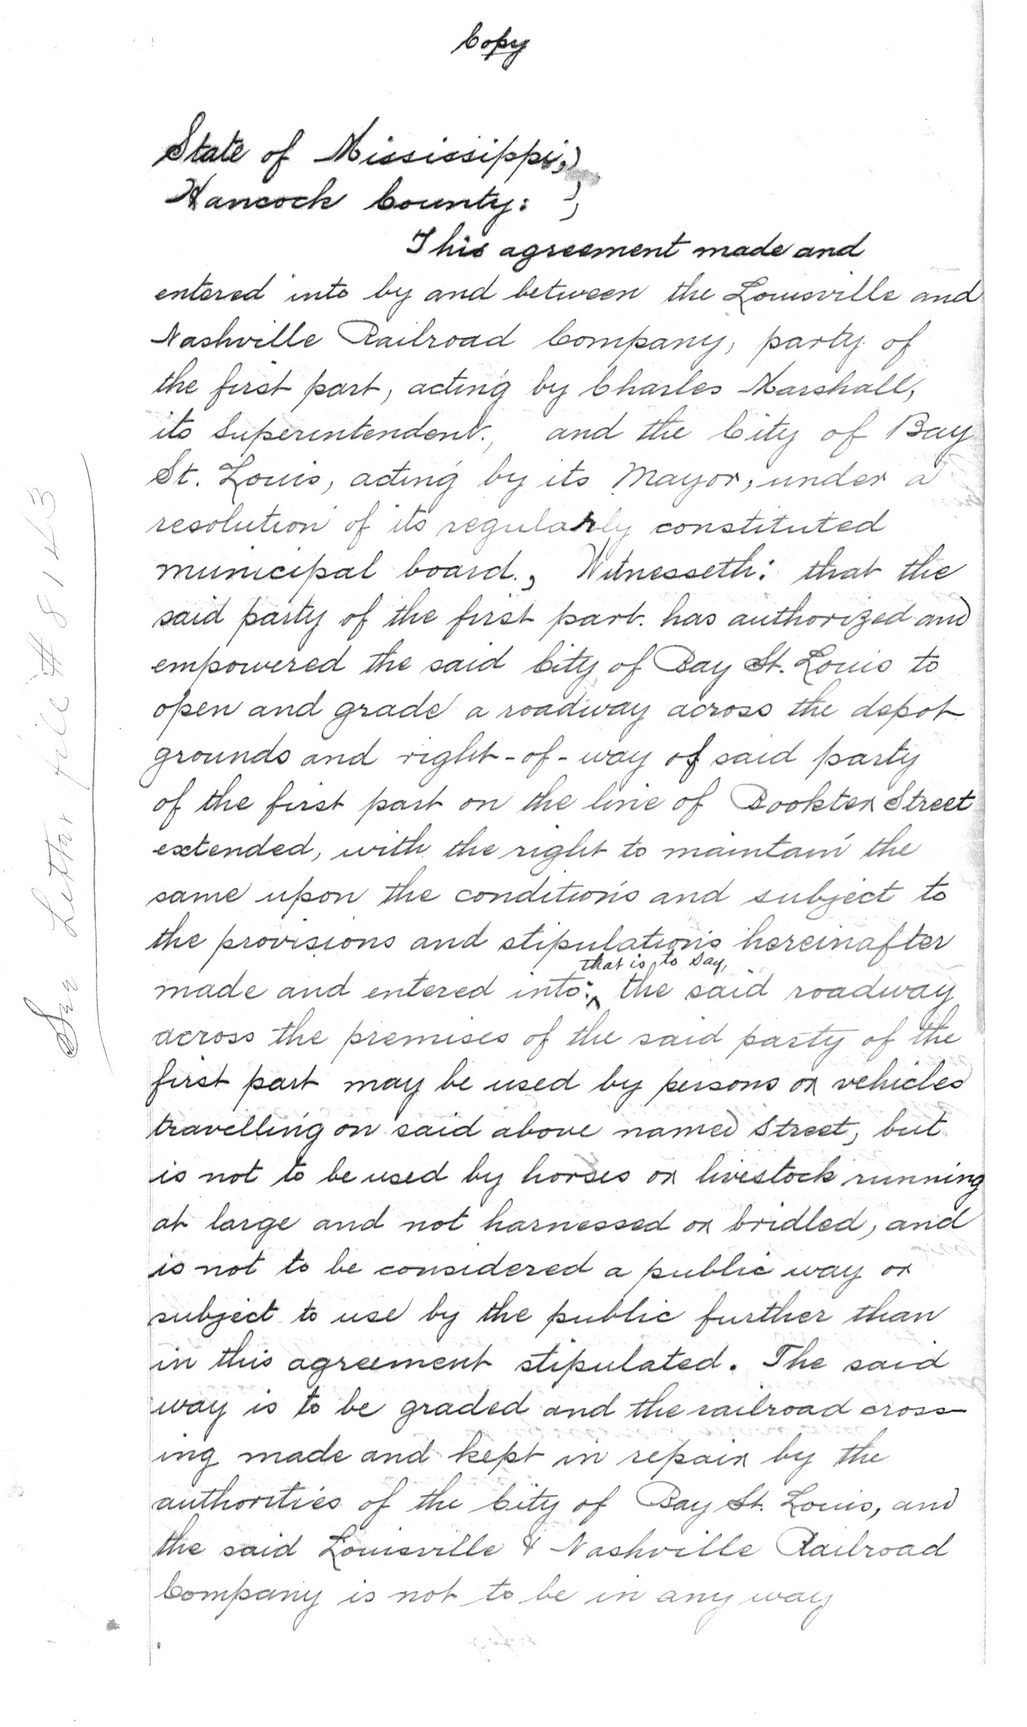 Copy
State of Mississippi,)
Hancock County: )
This agreement made and
entered into by and between the Louisville and
Nashville Railroad Company, party of
the first part, acting by Charles Marshall,
its Superintendent, and the City of Bay
St. Louis, acting by its Mayor, under a
resolution of its regularly constituted
municipal board., Witnesseth: that the
said party of the first part. has authorized and
empowered the said City of Bay St. Louis to
open and grade a roadway across the depot
grounds and right-of-way of said party
of the first part on the line of Bookter Street
extended, with the right to maintain the
same upon the conditions and subject to
the provisions and stipulations hereinafter
that is to say,
made and entered into: ^ the said roadway
across the premises of the said party of the
first part may be used by persons or vehicles
travelling on said above named Street, but
is not to be used by horses or livestock running
at large and not harnessed or bridled, and
is not to be considered a public way or
subject to use by the public further than
in this agreement stipulated. The said
way is to be graded and the railroad cross-
ing made and kept in repair by the
authorities of the City of Bay St. Louis, and
the said Louisville & Nashville Railroad
Company is not to be in any way
See Letter file # 8143